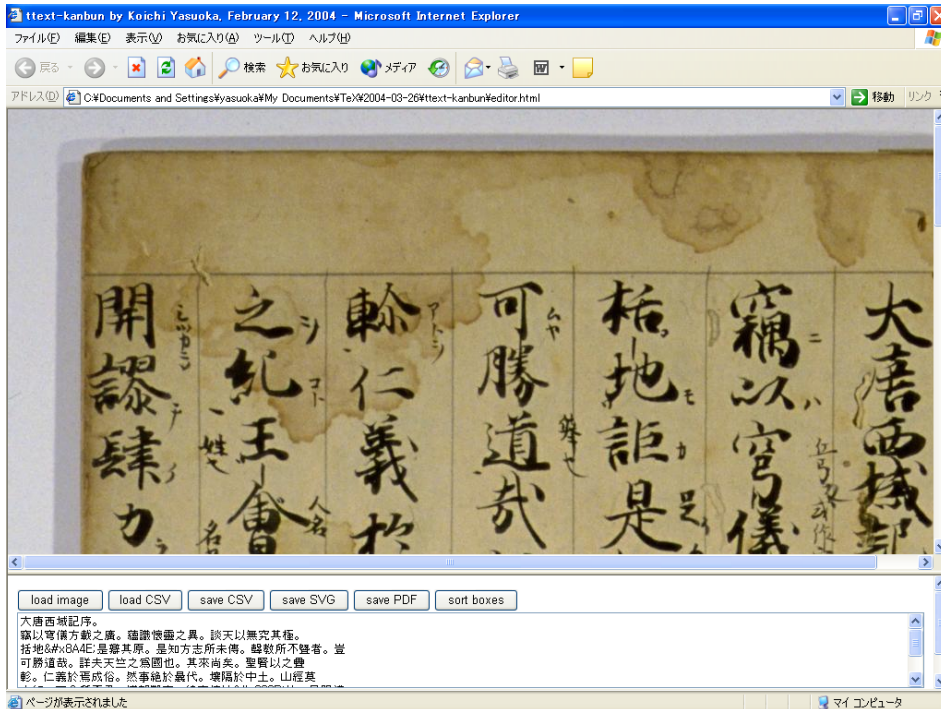 ttext-kanbun by Koichi Yasuoka, February 12, 2004 - Microsoft Internet Explorer
ファイル(F) 編集(E) 表示(V) お気に入り(A) ツール(T) ヘルプ(H)
戻る 検索 お気に入り メディア
アドレス(D) C:¥Documents and Settings¥yasuoka¥My Documents¥TeX¥2004-03-26¥ttext-kanbun¥editor.html 移動 リンク
大唐西域記
竊以穹儀
栝地詎是
可勝道哉
仁義於
之紀王會
開謬肆力
load image load CSV save CSV save SVG save PDF sort boxes
大唐西域記序。
竊以穹儀方載之廣。蘊識懷靈之異。談天以無究其極。
括地&#x8A4E;是辯其原。是知方志所未傳。聲教所不曁者。豈
可勝道哉。詳夫天竺之爲國也。其來尚矣。聖賢以之疊
彰。仁義於焉成俗。然事絶於曩代。壤隔於中土。山經莫
ページが表示されました マイ コンピュータ